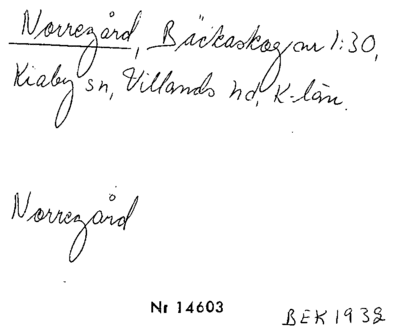 Norregård, Bäckaskog nr 1:30,
Kiaby sn, Villands hd, K-län.
Norregård
Nr 14603
BEK 1938